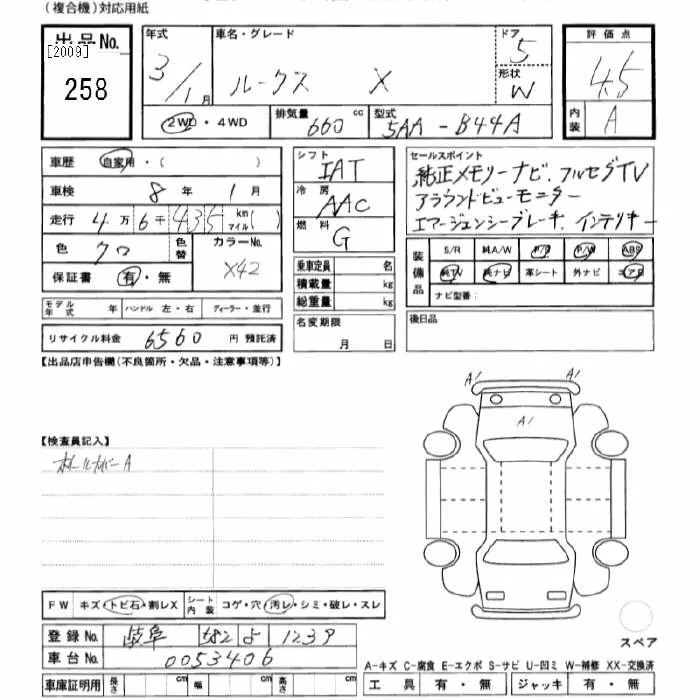 (複合機)対応用紙
出品No.
[2009]
258
年式 3/1月
車名・グレード ルークス X
ドア 5
形状 W
評価点 4.5
内装 A
2WD・4WD
排気量 660 cc
型式 5AA-B44A
車歴 自家用・( )
車検 8年 1月
走行 4万6千435 km マイル( )
色 クロ
色替
カラーNo. X42
保証書 有・無
モデル年式 年 ハンドル 左・右 ディーラー・並行
リサイクル料金 6560 円 預託済
シフト IAT
冷房 AAC
燃料 G
乗車定員 名
積載量 kg
総重量 kg
名変期限 月 日
セールスポイント
純正メモリーナビ、フルセグTV
アラウンドビューモニター
エマージェンシーブレーキ、インテリキー
装備品
S/R 純A/W P/S P/W ABS
純TV 純ナビ 革シート 外ナビ エアB
ナビ型番:
後日品
【出品店申告欄(不良箇所・欠品・注意事項等)】
A1 A1
A1
【検査員記入】
FW キズ・トビ石・割レX シート内装 コゲ・穴・汚レ・シミ・破レ・スレ
登録No. 岐阜 582 よ 1239
車台No. 0053406
車庫証明用 長さ cm 幅 cm 高さ cm
スペア
A-キズ C-腐食 E-エクボ S-サビ U-凹ミ W-補修 XX-交換済
工具 有・無 ジャッキ 有・無